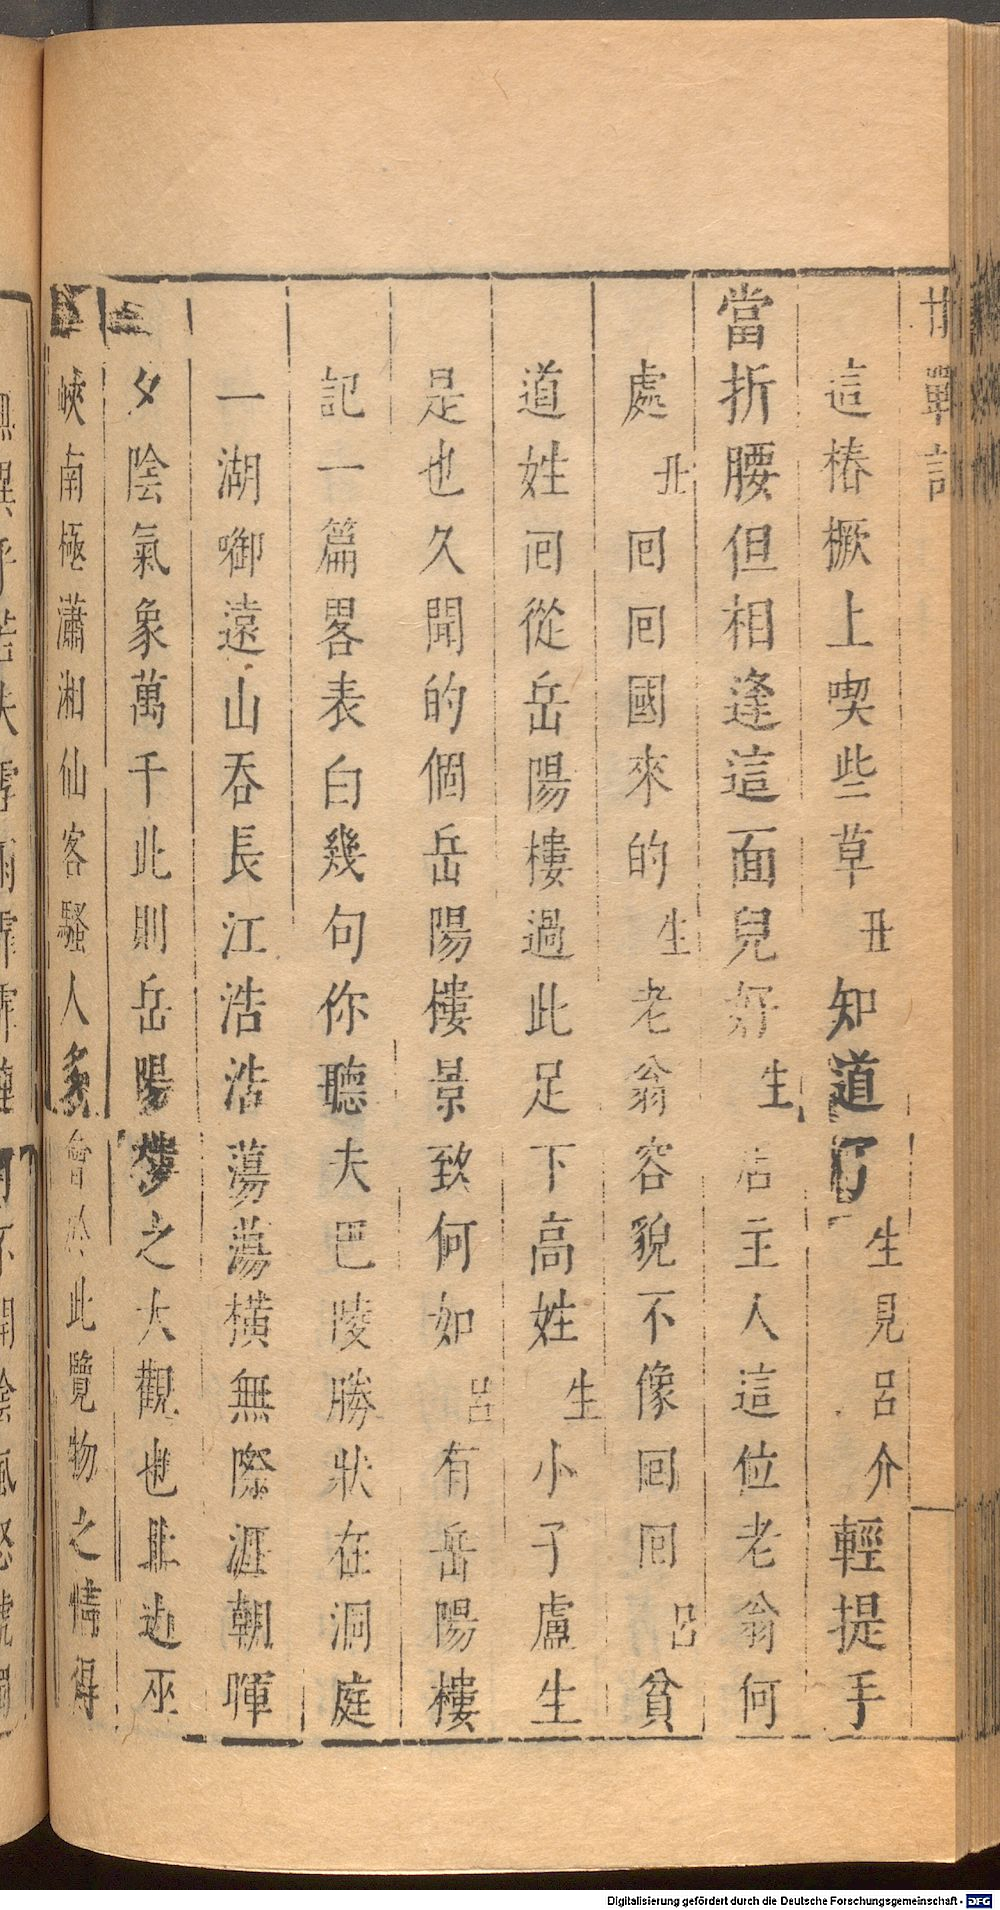 這椿橛上喫些草丑知道了生見呂介輕提手
當折腰但相逢這面兒好生店主人這位老翁何
處丑回回國來的生老翁容貌不像回回呂貧
道姓回從岳陽樓過此足下高姓生小子盧生
是也久聞的個岳陽樓景致何如呂有岳陽樓
記一篇畧表白幾句你聽夫巴陵勝狀在洞庭
一湖啣遠山吞長江浩浩蕩蕩橫無際涯朝暉
夕陰氣象萬千此則岳陽樓之大觀也且近巫
峽南極瀟湘仙客騷人多會於此覽物之情得
Digitalisierung gefördert durch die Deutsche Forschungsgemeinschaft - DFG